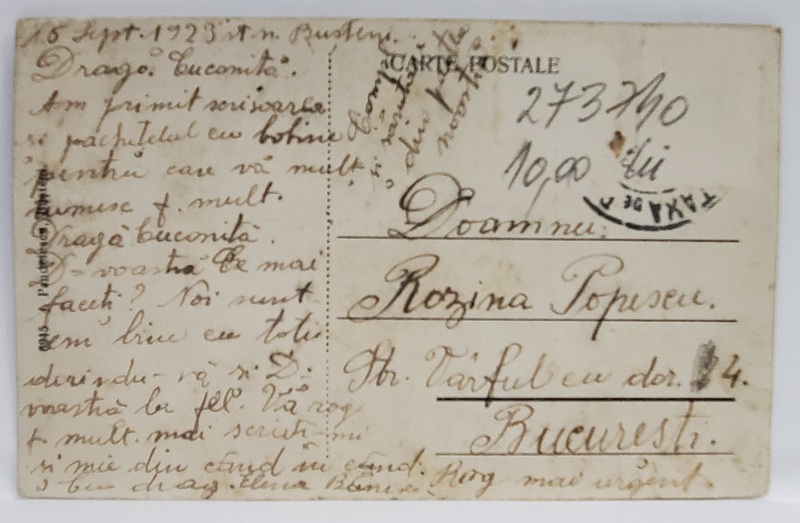 15 Sept. 1923 st. n. Busteni.
Dragă Cuconită.
Am primit scrisoarea
si pachetelul cu bobine
pentru care vă mult
f. mult.
Dragă Cuconită.
D-voastră Ce mai
faceti? Noi sunt
em bine cu totii
dorindu-vă si D.
voastră la fel. Vă rog
f. mult mai scrieti-mi
si mie din când în când.
drag Elena
Rog mai urgent
si
din
noastră
CARTE POSTALE
273740
10,00 lei
TAXA DE
Doamnei
Rozina Popescu.
Str. Vârful cu dor. 4.
Bucuresti.
6945